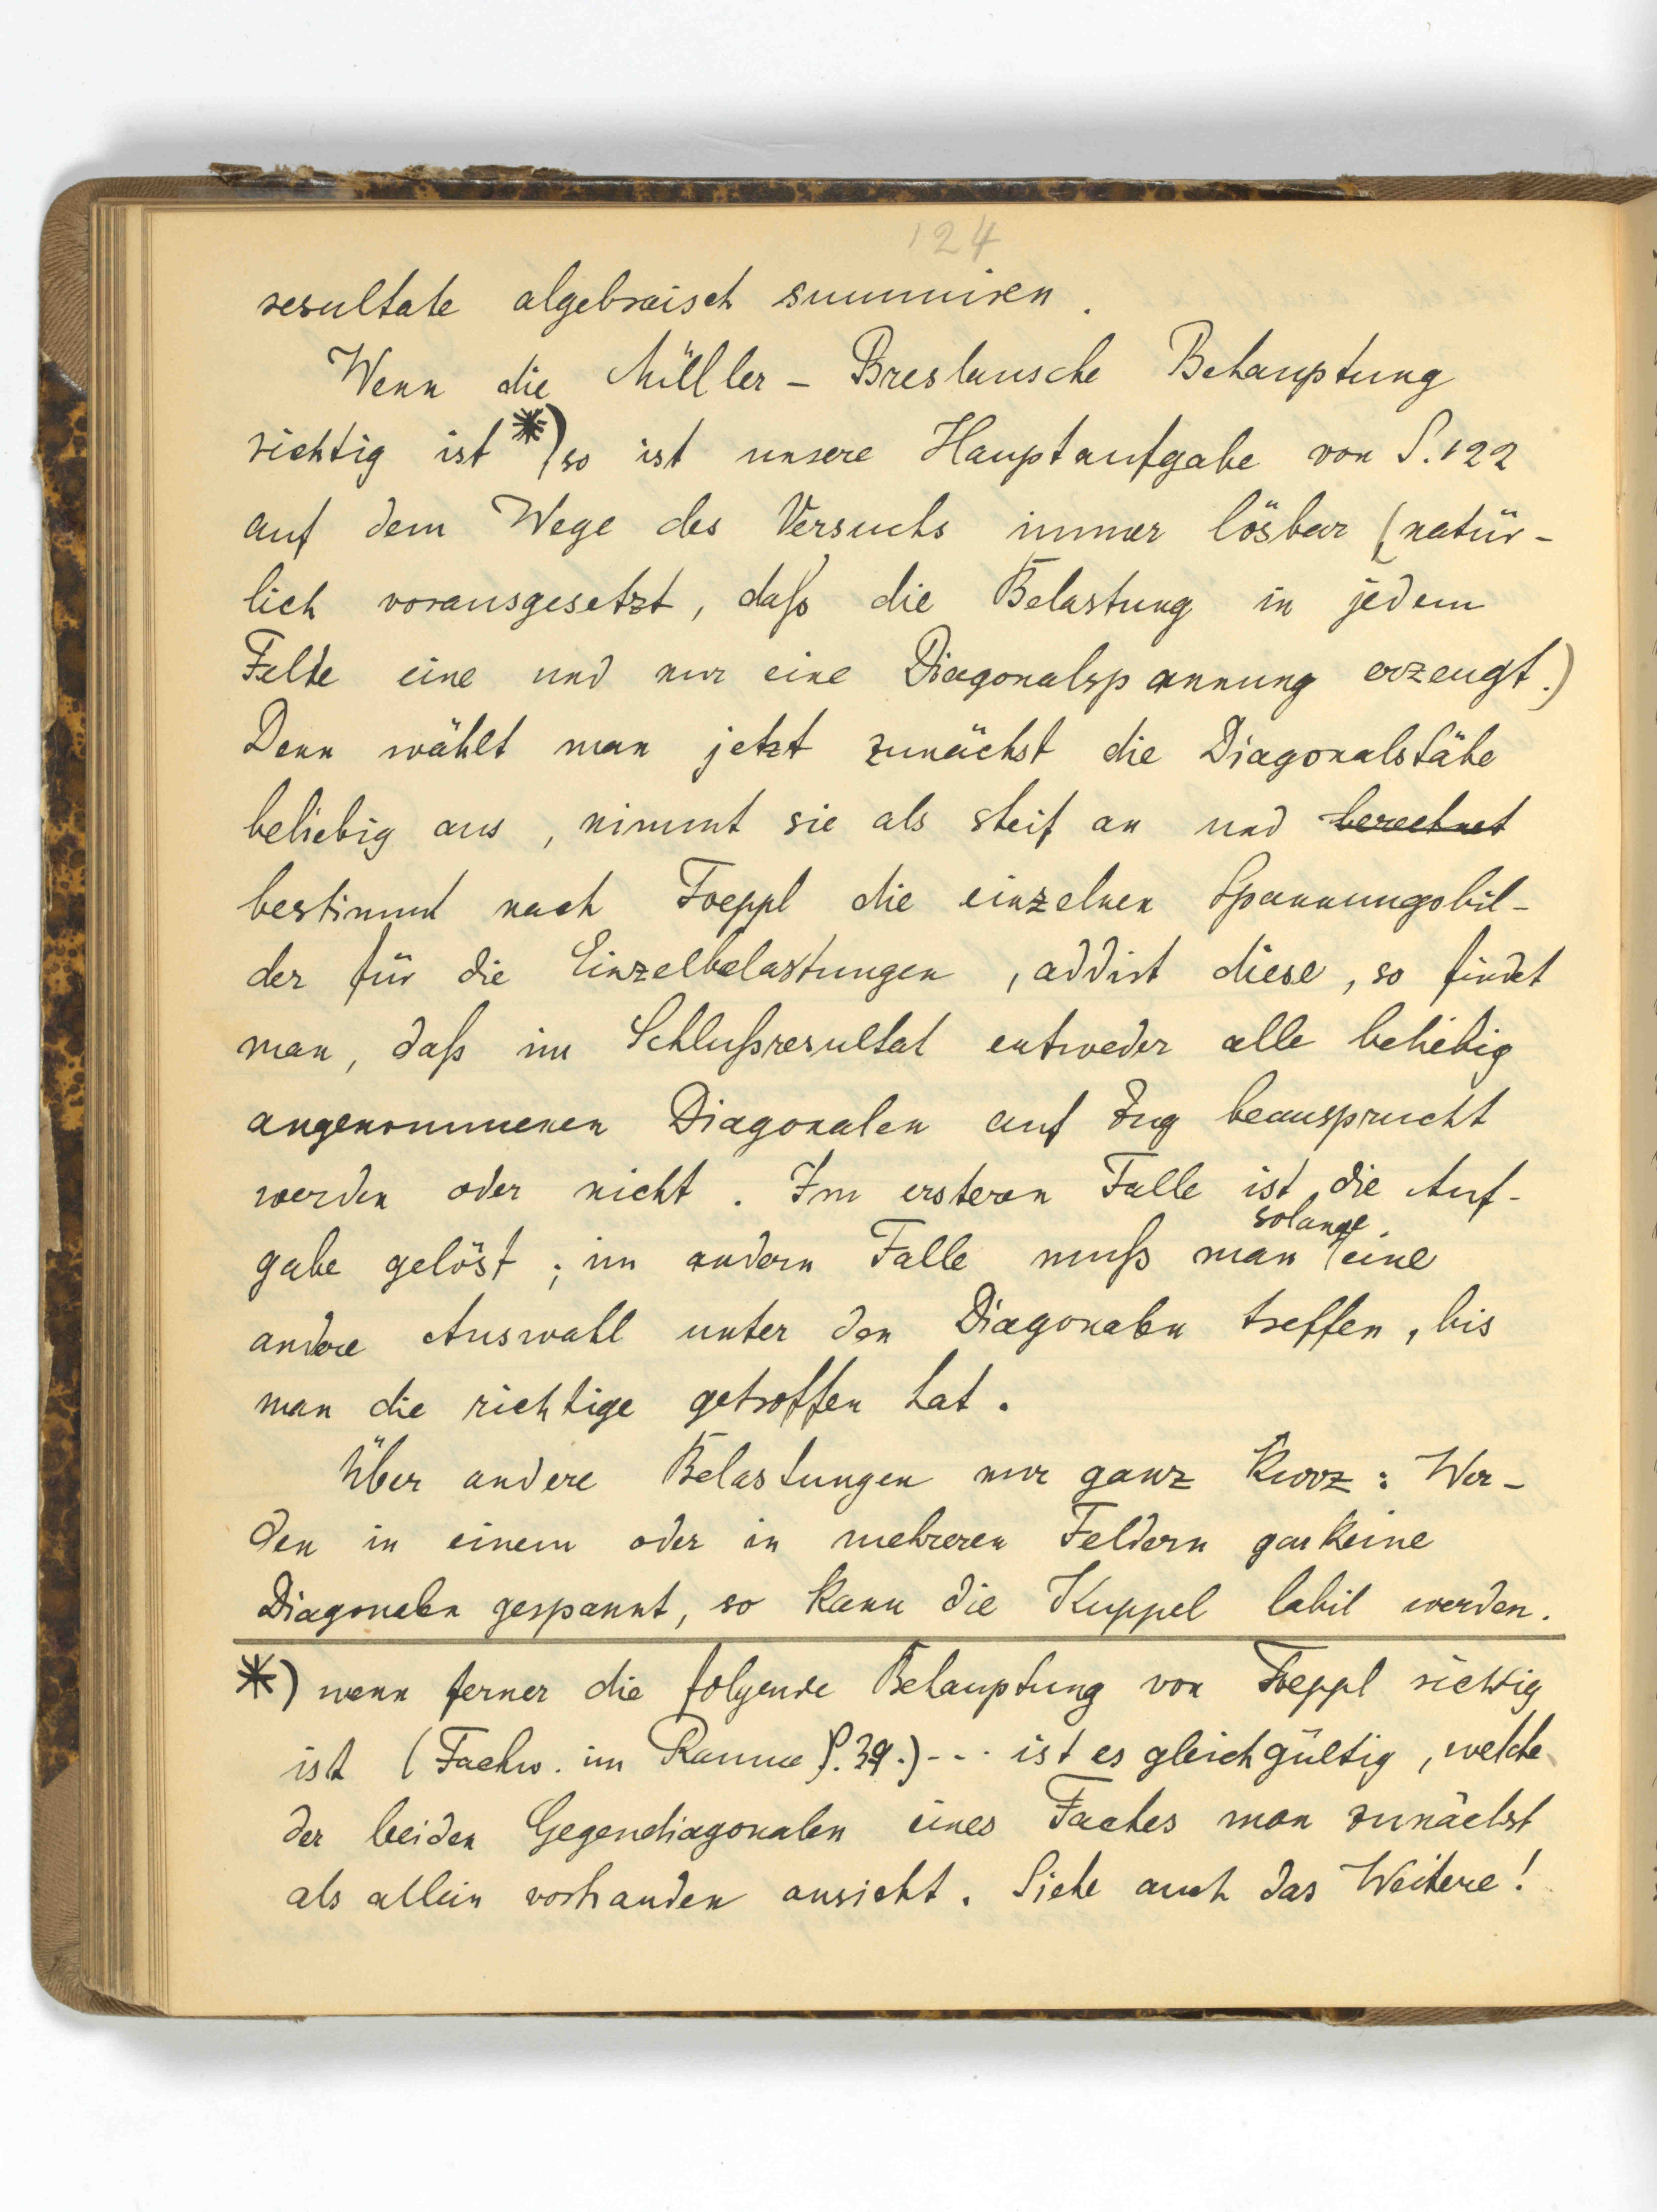 124
resultate algebraisch summiren.
Wenn die Müller-Breslausche Behauptung
richtig ist *) so ist unsere Hauptaufgabe von S. 122
auf dem Wege des Versuchs immer lösbar (natür-
lich vorausgesetzt, daß die Belastung in jedem
Felde eine und nur eine Diagonalspannung erzeugt.)
Denn wählt man jetzt zunächst die Diagonalstäbe
beliebig aus, nimmt sie als steif an und berechnet
bestimmt nach Foeppl die einzelnen Spannungsbil-
der für die Einzelbelastungen, addirt diese, so findet
man, daß im Schlußresultat entweder alle beliebig
angenommenen Diagonalen auf Zug beansprucht
werden oder nicht. Im ersteren Falle ist die Auf-
solange
gabe gelöst; im andern Falle muß man eine
andere Auswahl unter den Diagonalen treffen, bis
man die richtige getroffen hat.
Über andere Belastungen nur ganz kurz: Wer-
den in einem oder in mehreren Feldern gar keine
Diagonalen gespannt, so kann die Kuppel labil werden.
*) wenn ferner die folgende Behauptung von Foeppl richtig
ist (Fachw. im Raume S. 39.) --- ist es gleichgültig, welche
der beiden Gegendiagonalen eines Faches man zunächst
als allein vorhanden ansieht. Siehe auch das Weitere!